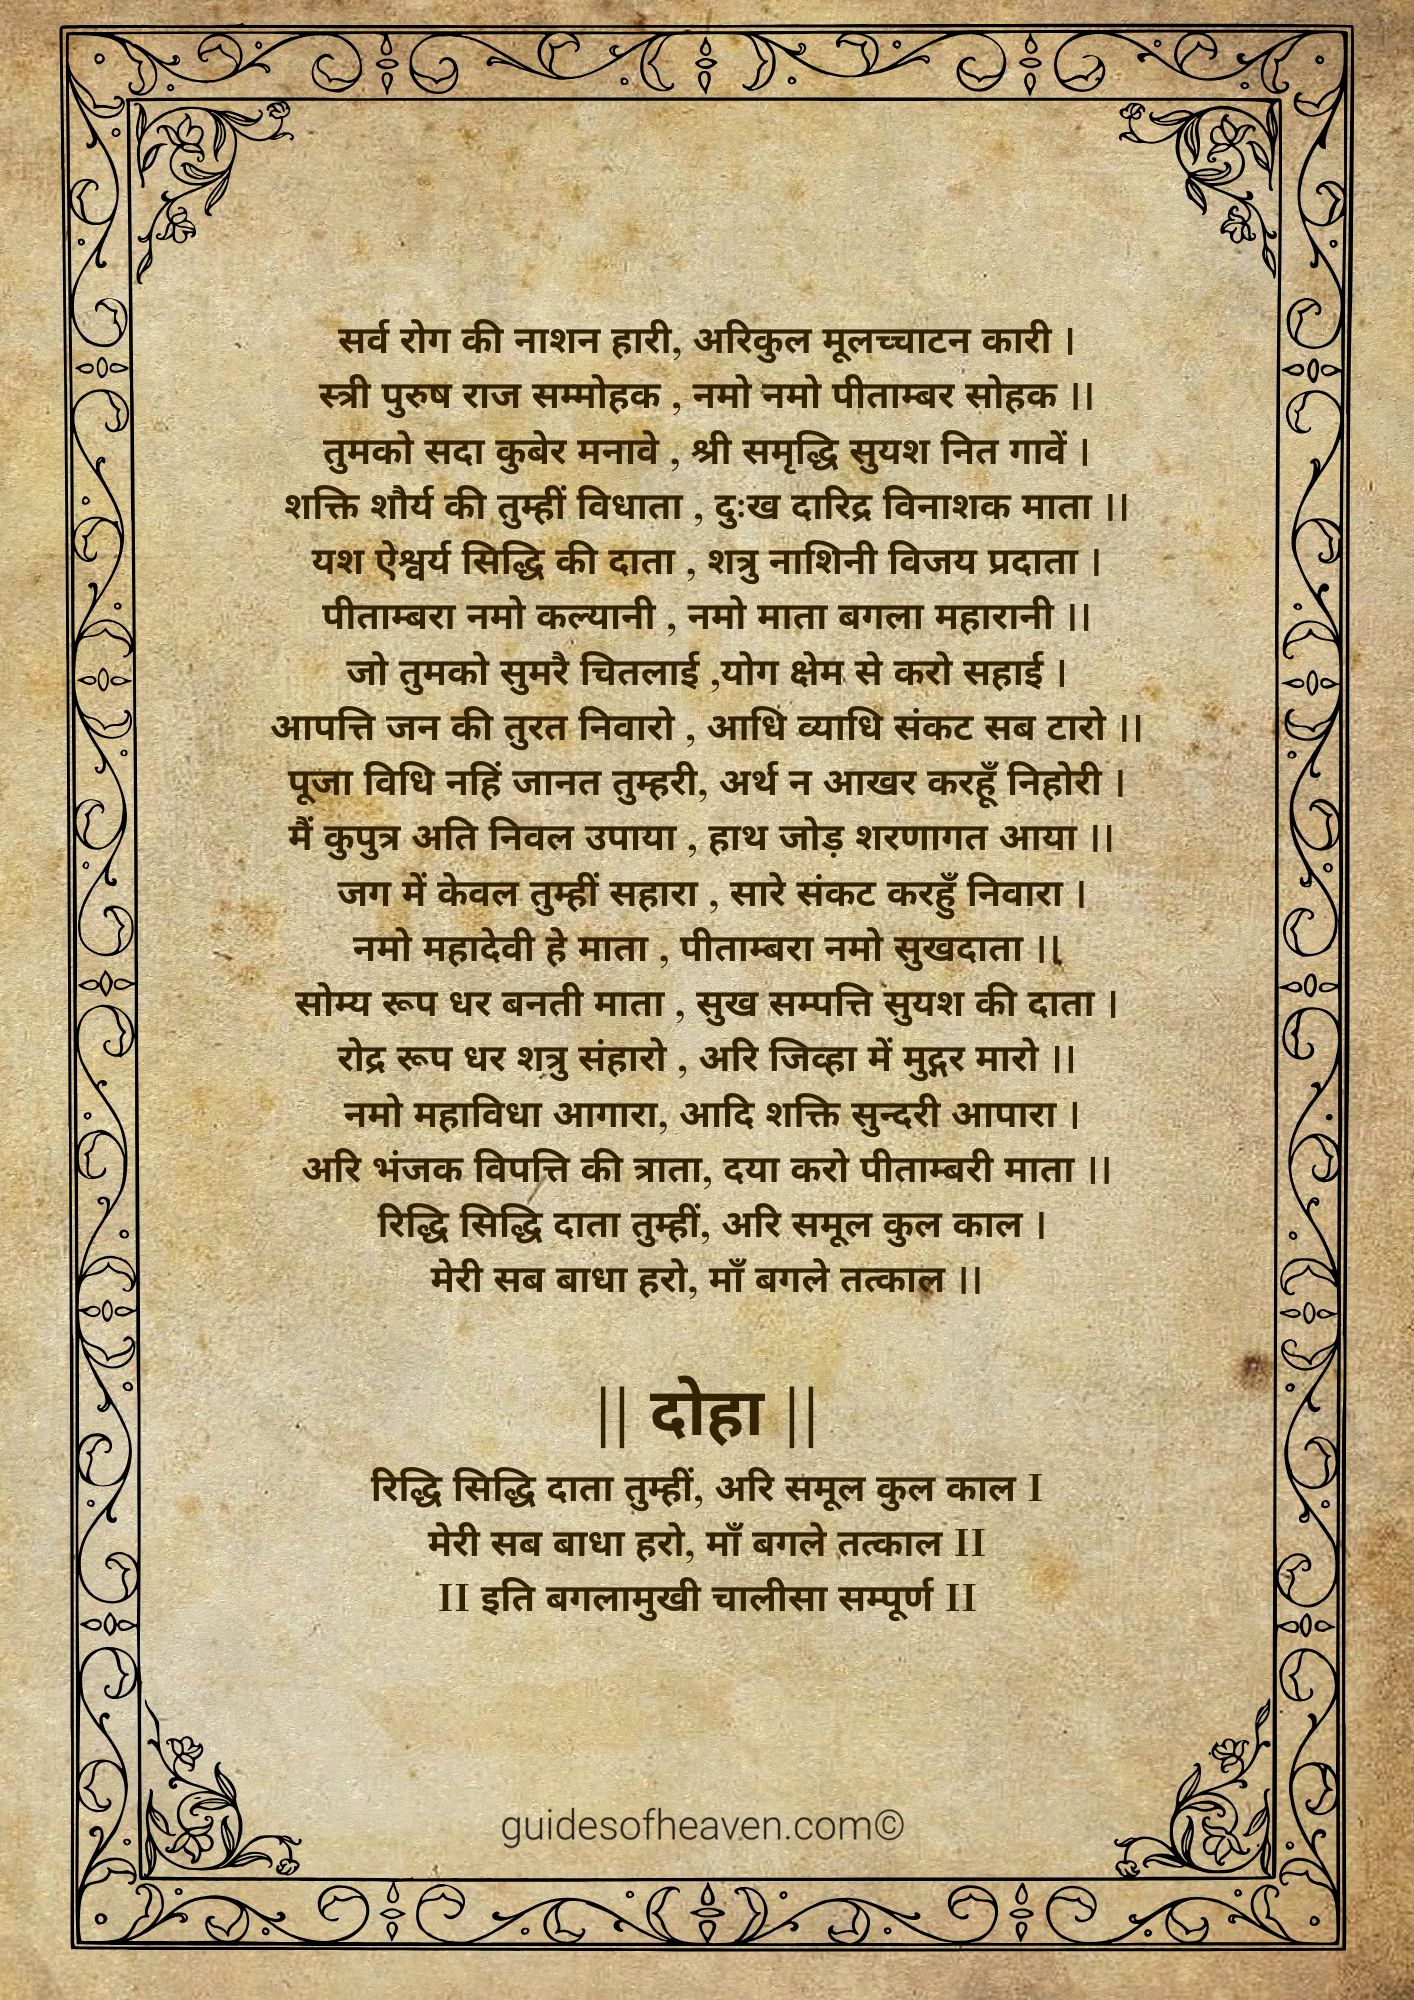 सर्व रोग की नाशन हारी, अरिकुल मूलच्चाटन कारी ।
स्त्री पुरुष राज सम्मोहक , नमो नमो पीताम्बर सोहक ।।
तुमको सदा कुबेर मनावे , श्री समृद्धि सुयश नित गावें ।
शक्ति शौर्य की तुम्हीं विधाता , दुःख दारिद्र विनाशक माता ।।
यश ऐश्वर्य सिद्धि की दाता , शत्रु नाशिनी विजय प्रदाता ।
पीताम्बरा नमो कल्यानी , नमो माता बगला महारानी ।।
जो तुमको सुमरै चितलाई ,योग क्षेम से करो सहाई ।
आपत्ति जन की तुरत निवारो , आधि व्याधि संकट सब टारो ।।
पूजा विधि नहिं जानत तुम्हरी, अर्थ न आखर करहूँ निहोरी ।
मैं कुपुत्र अति निवल उपाया , हाथ जोड़ शरणागत आया ।।
जग में केवल तुम्हीं सहारा , सारे संकट करहुँ निवारा ।
नमो महादेवी हे माता , पीताम्बरा नमो सुखदाता ।।
सोम्य रूप धर बनती माता , सुख सम्पत्ति सुयश की दाता ।
रोद्र रूप धर शत्रु संहारो , अरि जिव्हा में मुद्गर मारो ।।
नमो महाविधा आगारा, आदि शक्ति सुन्दरी आपारा ।
अरि भंजक विपत्ति की त्राता, दया करो पीताम्बरी माता ।।
रिद्धि सिद्धि दाता तुम्हीं, अरि समूल कुल काल ।
मेरी सब बाधा हरो, माँ बगले तत्काल ।।
|| दोहा ||
रिद्धि सिद्धि दाता तुम्हीं, अरि समूल कुल काल I
मेरी सब बाधा हरो, माँ बगले तत्काल II
II इति बगलामुखी चालीसा सम्पूर्ण II
guidesofheaven.com©